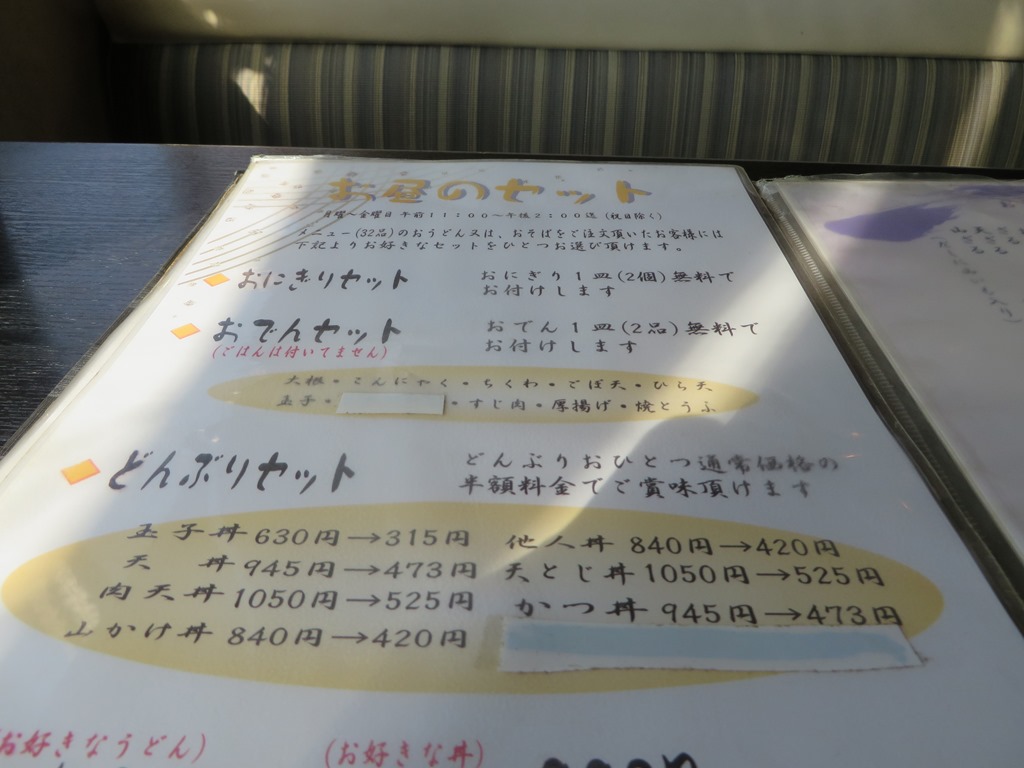 お昼のセット
月曜~金曜日 午前11:00~午後2:00迄 (祝日除く)
メニュー(32品)のおうどん又は、おそばをご注文頂いたお客様には
下記よりお好きなセットをひとつお選び頂けます。
おにぎりセット
おにぎり1皿(2個)無料で
お付けします
おでんセット
(ごはんは付いてません)
おでん1皿(2品)無料で
お付けします
大根・こんにゃく・ちくわ・ごぼ天・ひら天
玉子・ ・すじ肉・厚揚げ・焼とうふ
どんぶりセット
どんぶりおひとつ通常価格の
半額料金でご賞味頂けます
玉子丼 630円→315円
他人丼 840円→420円
天 丼 945円→473円
天とじ丼 1050円→525円
肉天丼 1050円→525円
かつ丼 945円→473円
山かけ丼 840円→420円
(お好きなうどん)
(お好きな丼)